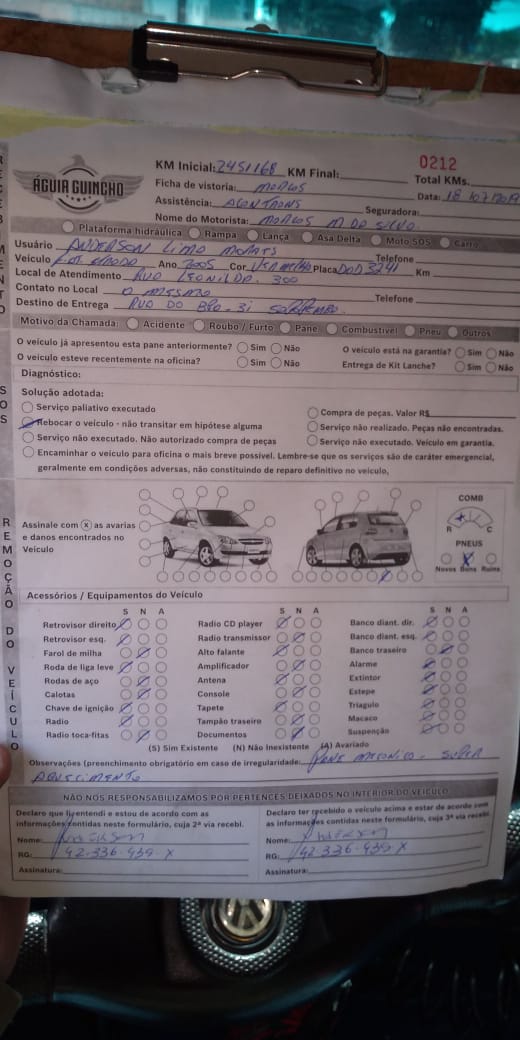 ÁGUIA GUINCHO
KM Inicial: 2451168 KM Final:
0212
Total KMs.
Ficha de vistoria: MARCOS
Data: 18/07/2019
Assistência:
Seguradora:
Nome do Motorista: MARCOS M DA SILVA
Plataforma hidráulica Rampa Lança Asa Delta Moto SOS Carro
Usuário ANDERSON LIMA MORAIS
Telefone
Veículo Ano 2005 Cor VERMELHA Placa DOD 3241 Km
Local de Atendimento RUA LEONILDA. 300
Contato no Local O MESMO Telefone
Destino de Entrega RUA DO 31
Motivo da Chamada: Acidente Roubo / Furto Pane Combustível Pneu Outros
O veículo já apresentou esta pane anteriormente? Sim Não O veículo está na garantia? Sim Não
O veículo esteve recentemente na oficina? Sim Não Entrega de Kit Lanche? Sim Não
Diagnóstico:
Solução adotada:
Serviço paliativo executado Compra de peças. Valor R$
Rebocar o veículo - não transitar em hipótese alguma Serviço não realizado. Peças não encontradas.
Serviço não executado. Não autorizado compra de peças Serviço não executado. Veículo em garantia.
Encaminhar o veículo para oficina o mais breve possível. Lembre-se que os serviços são de caráter emergencial,
geralmente em condições adversas, não constituindo de reparo definitivo no veículo,
SOS
REMOÇÃO DO VEÍCULO
Assinale com x as avarias
e danos encontrados no
Veículo
COMB
R C
PNEUS
Novos Bons Ruins
Acessórios / Equipamentos do Veículo
S N A S N A S N A
Retrovisor direito Radio CD player Banco diant. dir.
Retrovisor esq. Radio transmissor Banco diant. esq.
Farol de milha Alto falante Banco traseiro
Roda de liga leve Amplificador Alarme
Rodas de aço Antena Extintor
Calotas Console Estepe
Chave de ignição Tapete Triagulo
Radio Tampão traseiro Macaco
Radio toca-fitas Documentos Suspenção
(S) Sim Existente (N) Não Inexistente (A) Avariado
Observações (preenchimento obrigatório em caso de irregularidade: PANE MECONICO - SUPER
AQUECIMENTO
NÃO NOS RESPONSABILIZAMOS POR PERTENCES DEIXADOS NO INTERIOR DO VEÍCULO
Declaro que li, entendi e estou de acordo com as
informações contidas neste formulário, cuja 2ª via recebi.
Nome: ANDERSON
RG: 42.336.439-X
Assinatura:
Declaro ter recebido o veículo acima e estar de acordo com
as informações contidas neste formulário, cuja 3ª via recebi
Nome: ANDERSON
RG: 42.336.439-X
Assinatura: